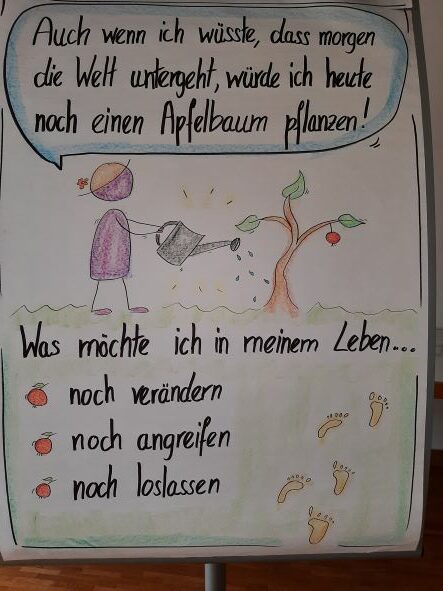 Auch wenn ich wüsste, dass morgen
die Welt untergeht, würde ich heute
noch einen Apfelbaum pflanzen!
Was möchte ich in meinem Leben...
noch verändern
noch angreifen
noch loslassen